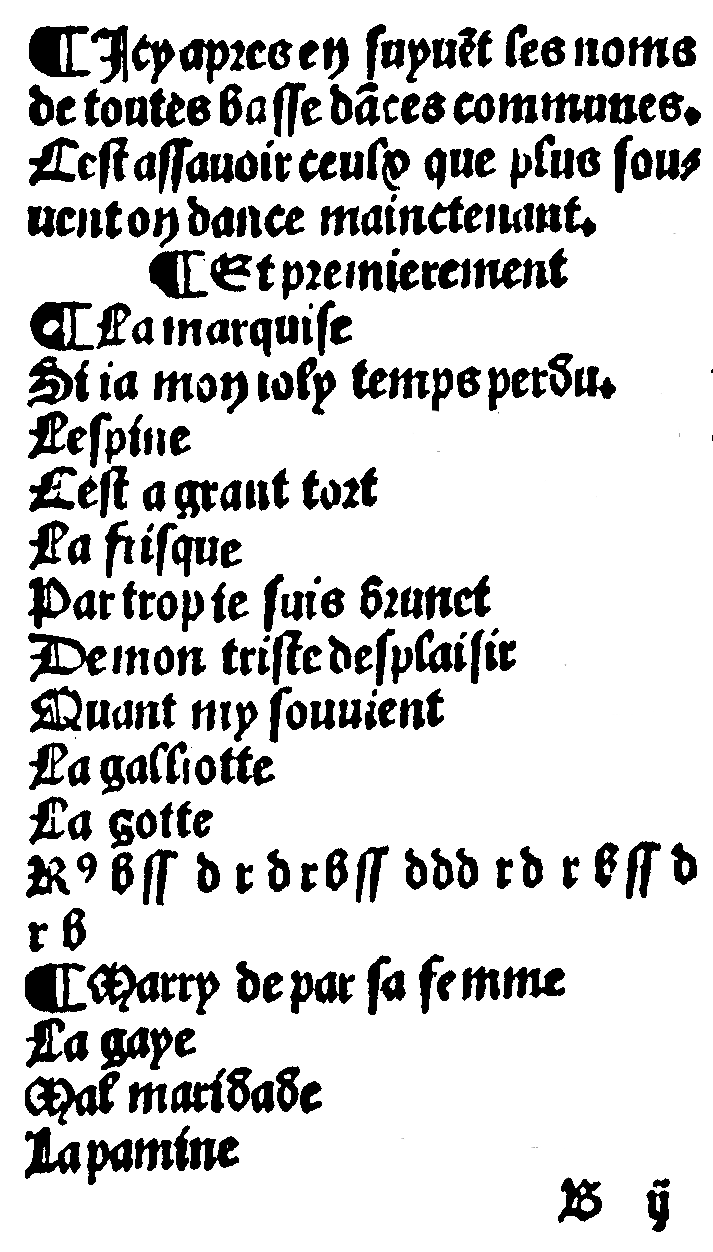 ¶ Icy apres en suyuẽt les noms
de toutes basse dãces communes.
Cest assauoir ceulx que plus sou⸗
uent on dance mainctenant.
¶ Et premierement
¶ La marquise
Si iay mon ioly temps perdu.
Lespine
Cest a grant tort
La frisque
Par trop ie suis brunet
De mon triste desplaisir
Quant my souuient
La galliotte
La gotte
Rꝰ b ss d r d r b ss ddd r d r b ss d
r b
¶ Marry de par sa femme
La gaye
Mal maridade
La pamine
B ij